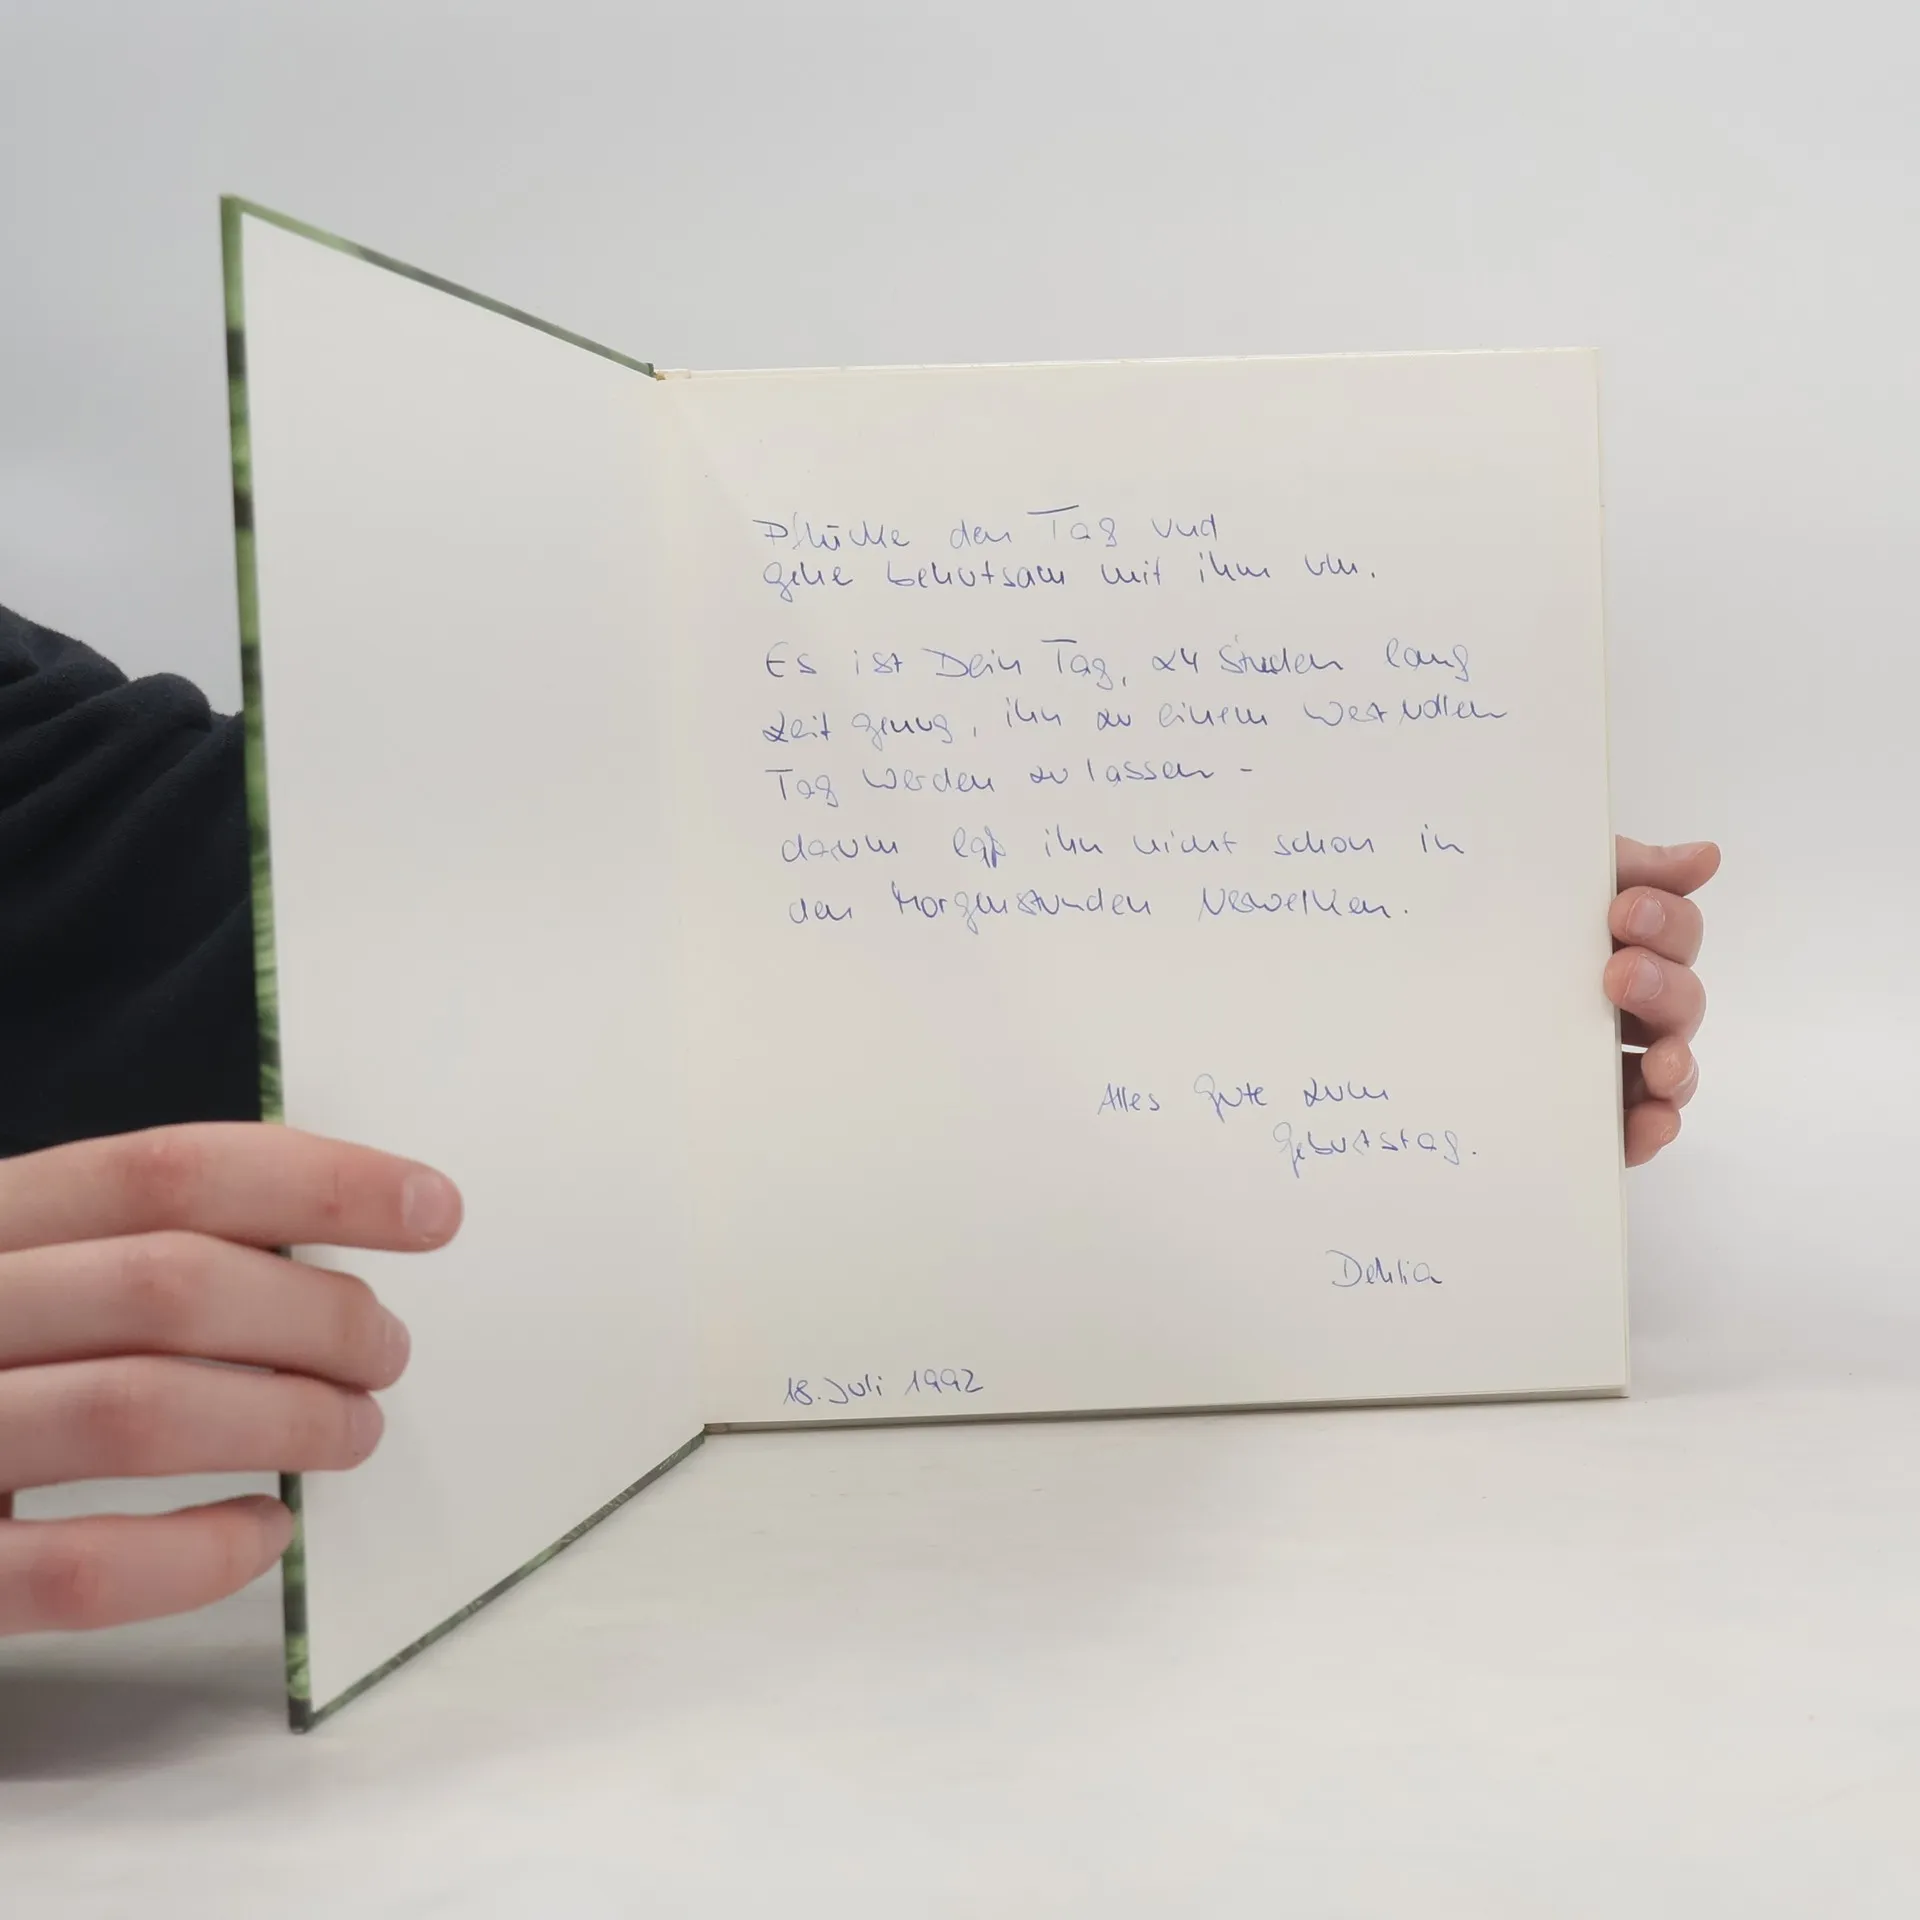 Pflücke den Tag und
gehe behutsam mit ihm um.
Es ist Dein Tag, 24 Stunden lang
Zeit genug, ihn zu einem wertvollen
Tag werden zu lassen -
darum laß ihn nicht schon in
den Morgenstunden verwelken.
Alles Gute zum
Geburtstag.
Dehlia
18. Juli 1992